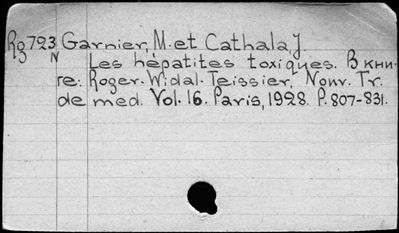 Rg 723 Garnier, M. et Cathala, J.
N Les hépatites toxiques. В кни-
ге: Roger. Widal. Teissier, Nouv. Tr.
de med. Vol. 16. Paris, 1928. P. 807-831.